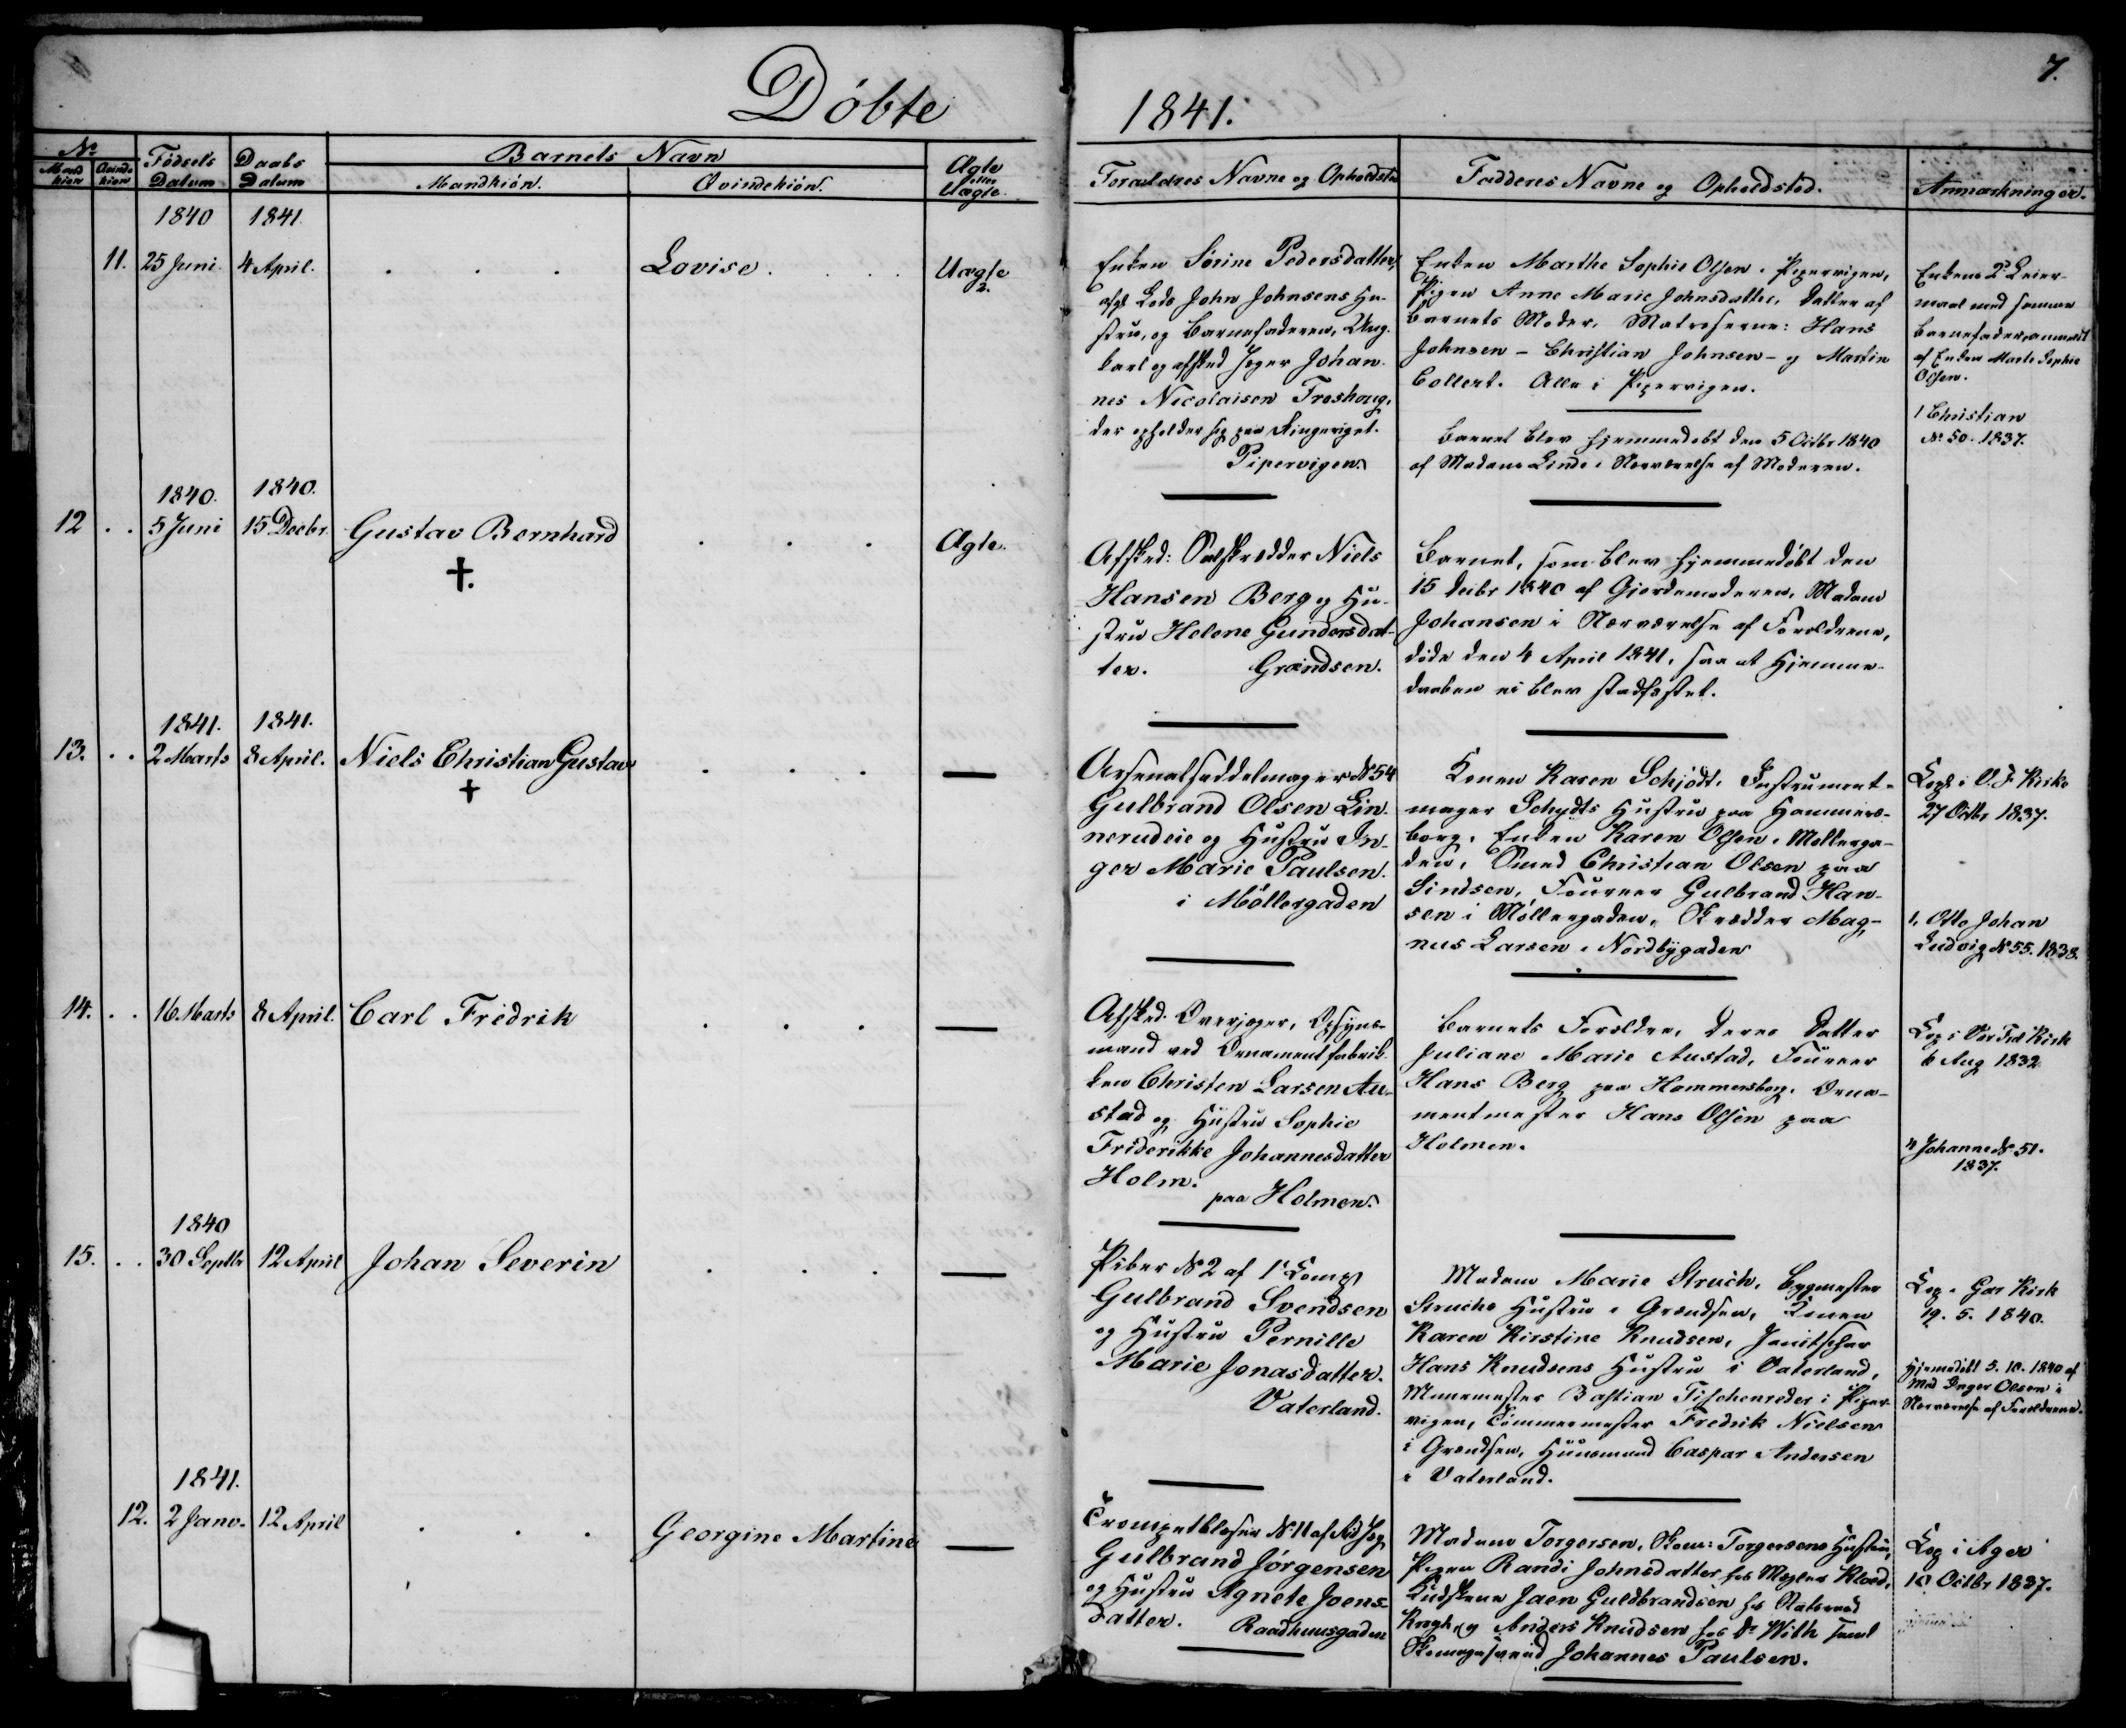 Döbte
1841.
7.
No
Mandkiön
Qvindekiön
Födsels Datum
Daabs Datum
Barnets Navn
Mandkiön.
Qvindekiön.
Ægte eller Uægte.
Forældres Navne og Opholdsted
Fadderes Navne og Opholdsted.
Anmærkninger.
1840 1841
11. 25 Juni. 4 April. Lovise. Uægte
2.
Enken Sörine Pedersdatter,
afg. Lods John Johnsens Hu-
stru, og Barnefaderen, Ung-
karl og afsked Jæger Johan-
nes Nicolaisen Froshoug,
der opholder sig paa Ringeriget.
Pipervigen.
Enken Marthe Sophie Olsen i Pipervigen,
Pigen Anne Marie Johnsdatter, Datter af
Barnets Moder. Matroserne: Hans
Johnsen - Christian Johnsen - og Martin
Collert. Alle i Pipervigen.
Barnet blev hjemmedöbt den 5 Octbr 1840
af Madame Linde i Nærværelse af Moderen.
Enkens 2d Leier-
maal med samme
Barnefader, anmeldt
af Enken Marte Sophie
Olsen.
1 Christian
No 50. 1837.
1840. 1840.
12 5 Juni 15 Decbr. Gustav Bernhard Ægte.
†.
Afsked: Salskrædder Niels
Hansen Berg og Hu-
stru Helene Gundersdat-
ter. Grændsen.
Barnet, som blev hjemmedöbt den
15 Decbr 1840 af Gjordemoderen, Madam
Johansen i Nærværelse af Forældrene,
döde den 4 April 1841, saa at Hjemme-
daaben ei blev stadfæstet.
1841. 1841.
13. 2 Marts 8 April. Niels Christian Gustav
†
Arsenalsaddelmager No 54
Gulbrand Olsen Lin-
nerudeie og Hustru In-
ger Marie Paulsen.
i Möllergaden
Konen Karen Schjödt, Instrument-
mager Schydts Hustru paa Hammers-
borg, Enken Karen Olsen i Möllerga-
den, Smed Christian Olsen paa
Sindsen, Foureer Gulbrand Han-
sen i Möllergaden, Skrædder Mag-
nus Larsen i Nordbygaden
Copl. i V. F. Kirke
27 Octbr 1837.
1, Otto Johan
Ludvig No 55. 1838.
14. 16 Marts 8 April. Carl Fredrik
Afsked. Overjæger, Opsyns-
mand ved Ornamentfabrik-
ken Christen Larsen Au-
stad og Hustru Sophie
Friderikke Johannesdatter
Holm.
paa Holmen.
Barnets Forældre, deres Datter
Juliane Marie Austad, Foureer
Hans Berg paa Hammersborg. Orna-
mentmester Hans Olsen paa
Holmen.
Cop i Vor Frel Kirk
6 Aug 1832
4 Johanne No 51.
1837.
1840
15. 30 Septbr 12 April Johan Severin
Piber No 2 af 1e Comp
Gulbrand Svendsen
og Hustru Pernille
Marie Jonasdatter.
Vaterland.
Madam Marie Struch, Bygmester
Struchs Hustru i Grændsen, Konen
Karen Kirstine Knudsen, Janitschar
Hans Knudsens Hustru i Vaterland,
Muurmester Bastian Tischenreder i Piper-
vigen, Tömmermester Fredrik Nielsen
i Grændsen, Huusmand Caspar Andersen
i Vaterland.
Cop. i Gar Kirk
19. 5. 1840.
Hjemmedöbt 5. 10. 1840 af
Mad Inger Olsen i
Nærværelse af Forældrene.
1841.
12. 2 Janv. 12 April Georgine Martine
Trompetblæser No 11 af Rid Jæg
Gulbrand Jörgensen
og Hustru Agnete Joens-
datter. Raadhuusgaden
Madame Torgersen, Skom: Torgersens Hustru,
Pigen Randi Johnsdatter hos Mægler Kloed,
Kudskene Jaen Guldbrandsen hos Statsraad
Krogh og Anders Knudsen hos Dr With samt
Skomagersvend Johannes Paulsen.
Cop i Ager
10 Octbr 1837.